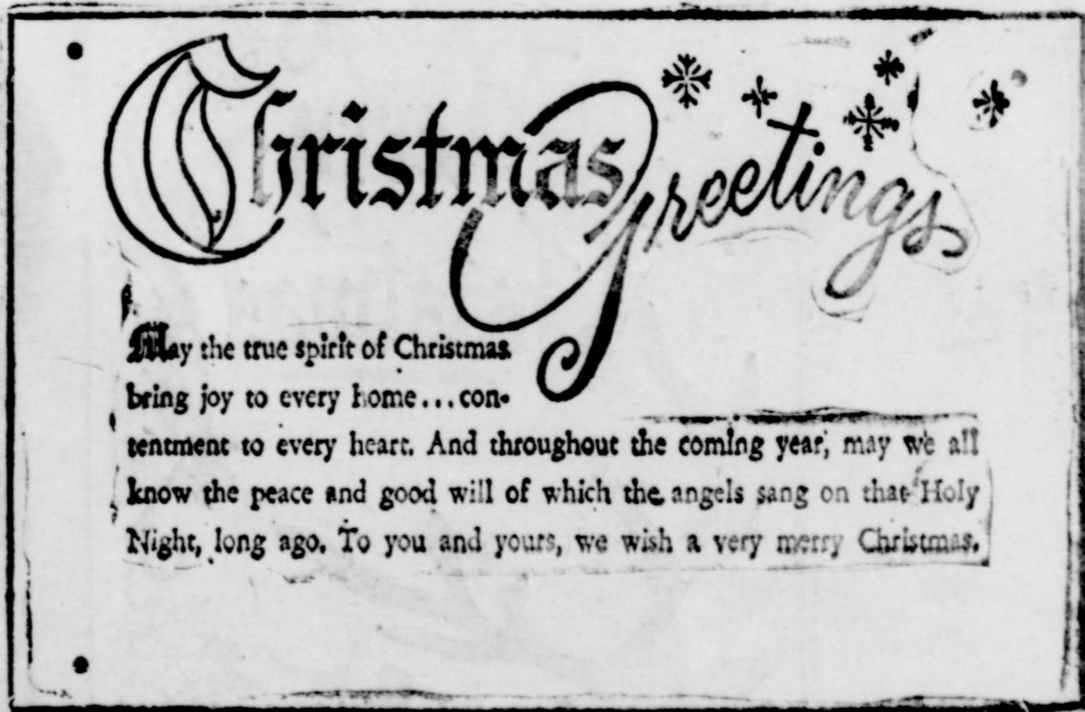 Christmas Greetings
May the true spirit of Christmas
bring joy to every home...con-
tentment to every heart. And throughout the coming year, may we all
know the peace and good will of which the angels sang on that Holy
Night, long ago. To you and yours, we wish a very merry Christmas.